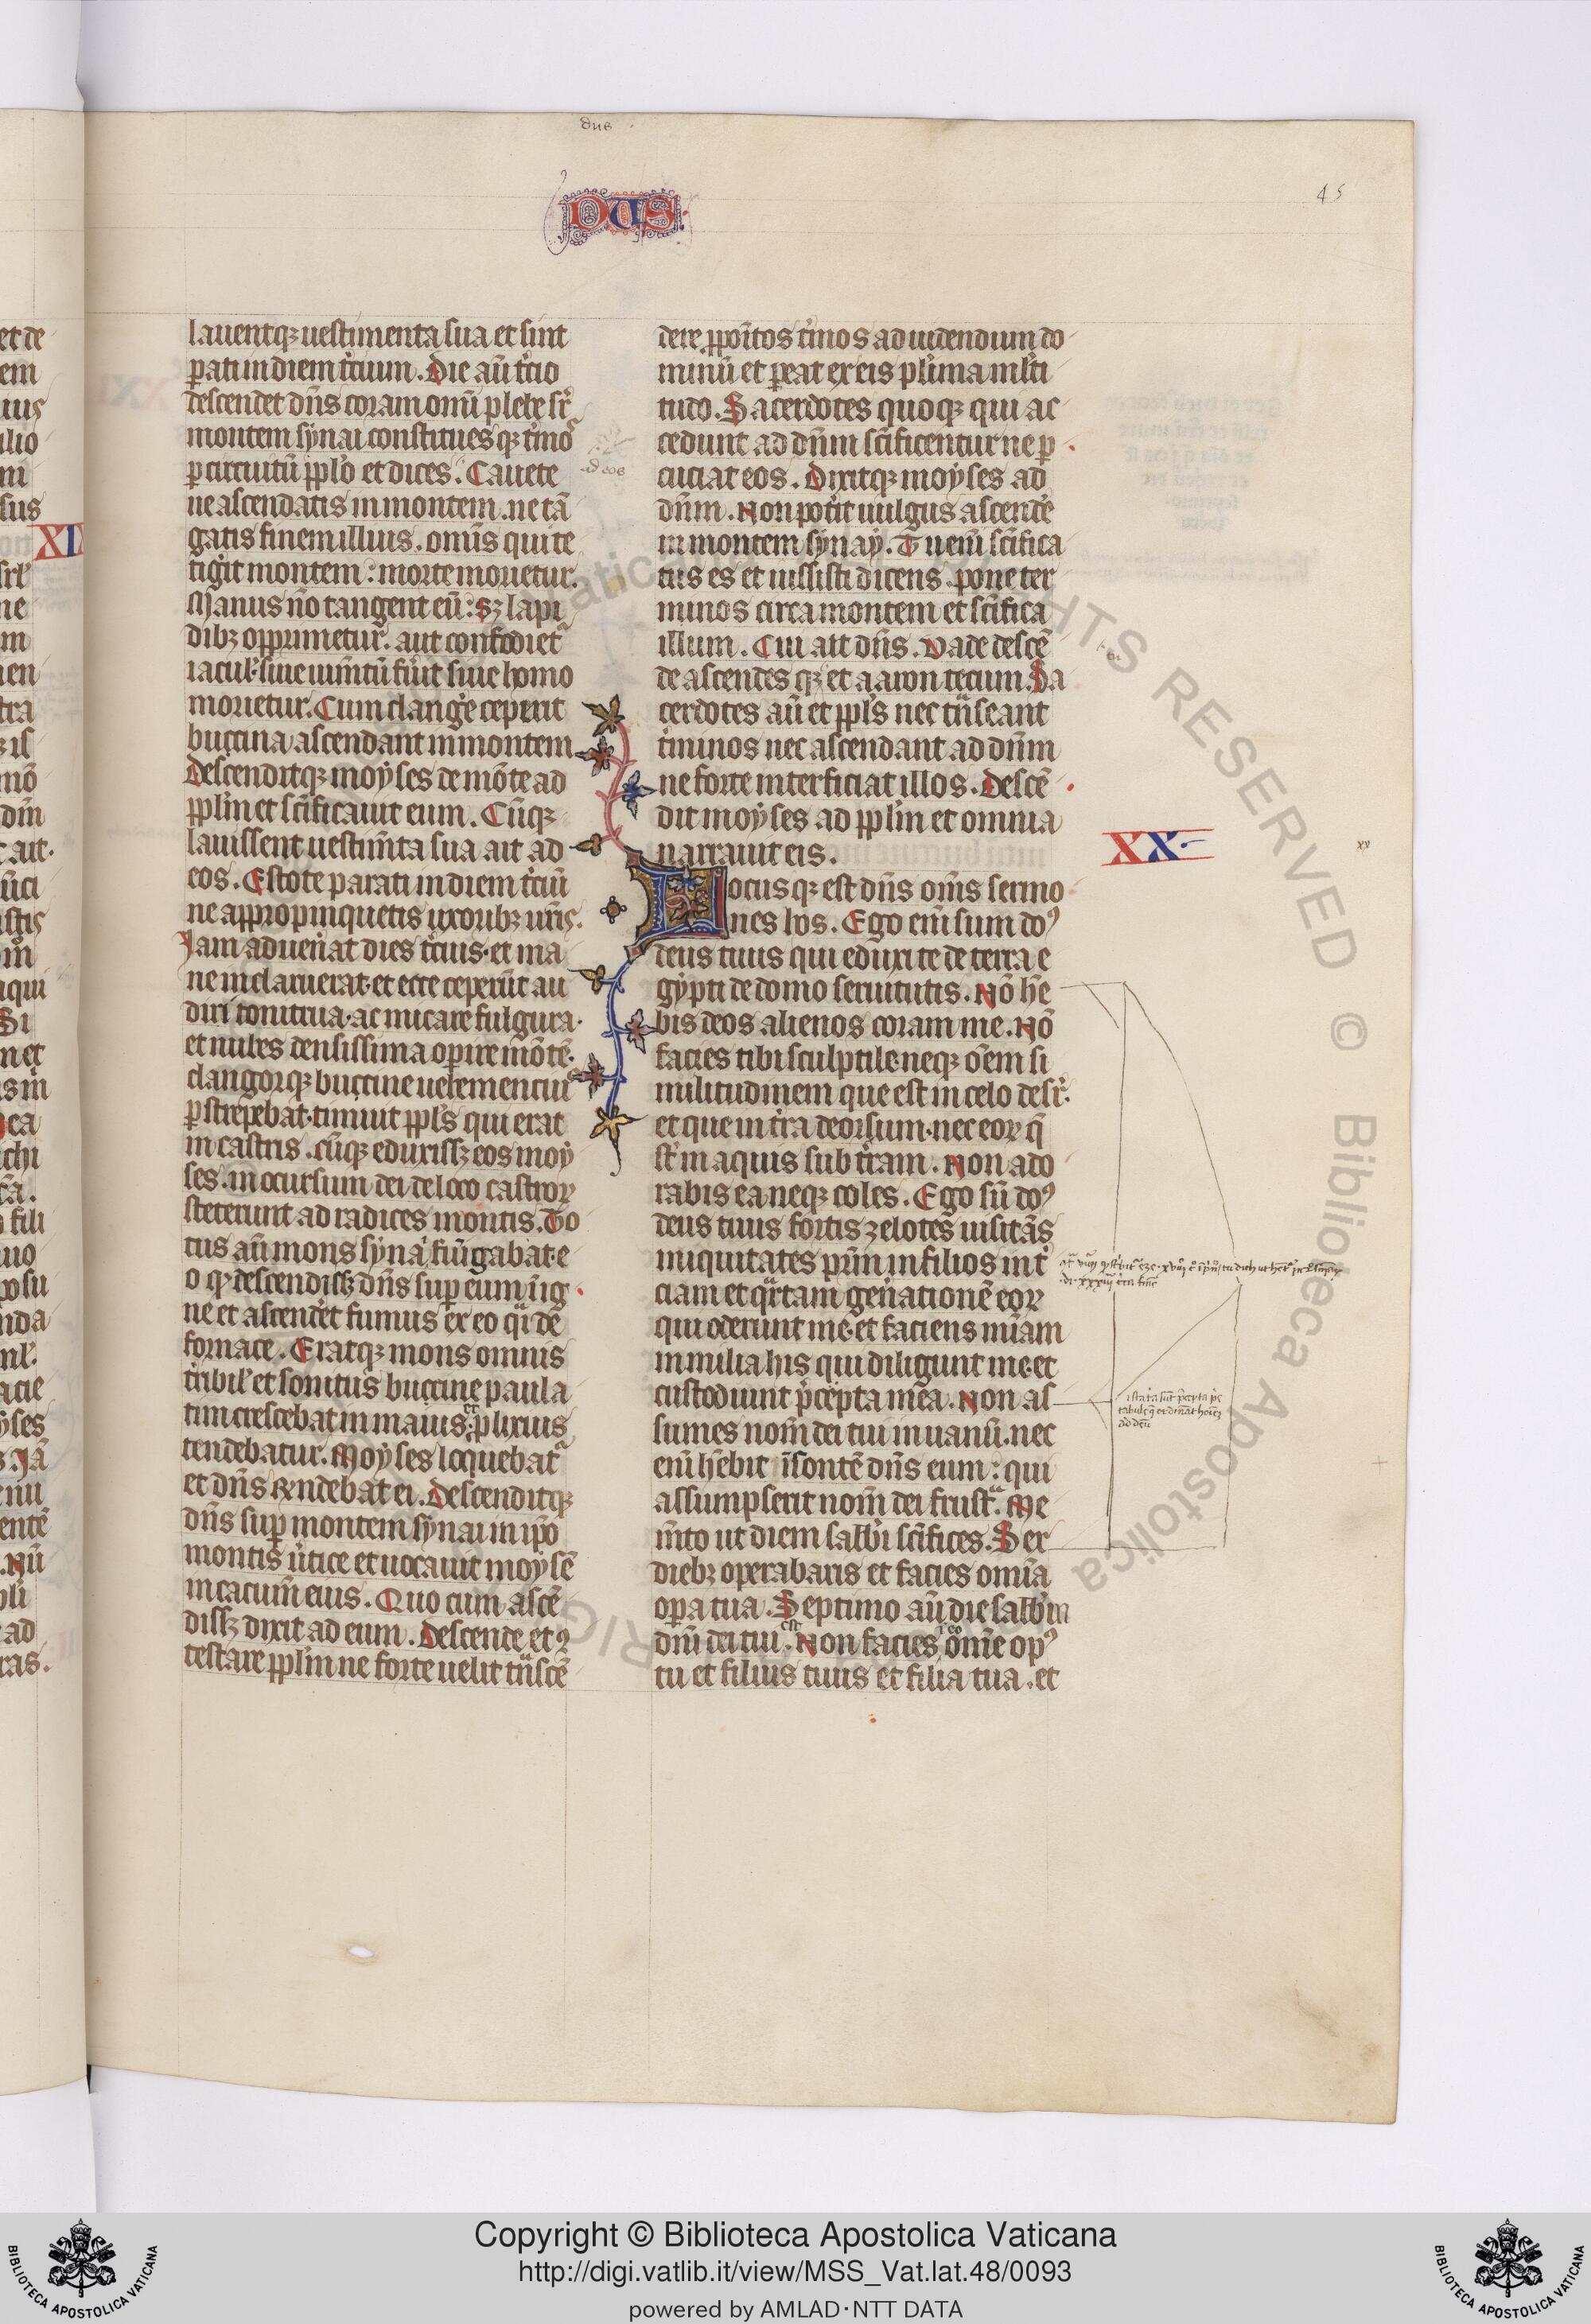 dus
DUS
45
lauentqꝫ uestimenta sua et sint
ꝑati in diem t̾cium. Die aū t̾cio
descendet dn̄s coram om̄i plebe sr̄
montem synai constitues qꝫ t̾mō
ꝑ circuitū pp̄lo et dices. Cauete
ne ascendatis in montem. ne tā
gatis finem illius. om̄is qui te
tig̾it montem: morte morietur.
Manus nō tangent eū: sꝫ lapi
dibꝫ opprimetur. aut confodiet᷑
iacul̾. siue ium̄tū fu̾it siue homo
morietur. Cum clang̾e ceperit
buccina ascendant in montem
Descenditqꝫ moyses de mōte ad
pp̄lm et sc̄ificauit eum. Cūqꝫ
lauissent uestim̄ta sua ait ad
eos. Estote parati in diem t̾ciū
ne appropinquetis uxoribꝫ ur̄is.
Iam aduen̾at dies t̾cius. et ma
ne inclaruerat. et ecce ceperūt au
diri tonitrua. ac micare fulgura.
et nubes densissima oꝑire mōtē.
clangorqꝫ buccine uehementiu᷒
ꝑstrepebat. timuit pp̄ls qui erat
in castris. cūqꝫ eduxissꝫ eos moy
ses. in occursum dei de loco castroꝝ
steterunt ad radices montis. To
tus aū mons syna̾ fūgabat. e
o qꝫ descendissꝫ dn̄s suꝑ eum ī ig
ne et ascend̾et fumus ex eo q̾i de
fornace. Eratqꝫ mons omnis
t̾ribil̾ et sonitus buccine paula
tim crescebat in maius: et ꝓlixius
tendebatur. Moyses loquebat᷑
et dn̄s rn̄debat ei. Descenditqꝫ
dn̄s suꝑ montem synai in ip̄o
montis u̾tice et uocauit moysē
in cacum̄ eius. Quo cum ascē
dissꝫ dixit ad eum. Descende et ꝯ
testare pp̄lm ne forte uelit tn̄scē
ad eos
dere ꝓpoītos t̾mīos ad uidendum do
minū et ꝑeat ex eis pl̾ima ml̾ti
tudo. Sacerdotes quoqꝫ qui ac
cedunt ad dn̄m sc̄ificentur ne ꝑ
cutiat eos. Dixitqꝫ moyses ad
dn̄m. Non pot̾it uulgus ascend̾e
in montem synay. Tu enī sc̄ifica
tus es et iussisti dicens. pone ter
minos circa montem et sc̄ifica
illum. Cui ait dn̄s. Vade descē
de ascendes qꝫ et aaron tecum. Sa
cerdotes aū et pp̄ls nec tn̄seant
t̾minos nec ascendant ad dn̄m
ne forte interficiat illos. Descē
dit moyses ad pp̄lm et omnia
narrauit eis.
XX.
xx
Locusqꝫ est dn̄s om̄s sermo
nes hos. Ego enī sum do᷒
deus tuus qui eduxi te de terra e
gypti de domo seruitutis. Nō hē
bis deos alienos coram me. Nō
facies tibi sculptile. neqꝫ oēm si
militudinem que est in celo desr̄.
et que in t̾ra deorsum. nec eoꝝ q̄
sr̄ in aquis sub t̾ram. Non ado
rabis ea neqꝫ coles. Ego sū do᷒
deus tuus fortis zelotes uisitās
iniquitates pr̄m in filios in t̾
ciam et q̾rtam gen̾ationē eoꝝ
qui oderunt me. et faciens mīam
in milia his qui diligunt me. et
custodiunt p̾cepta mea. Non as
sumes nom̄ dei tui in uanū. nec
enī hēbit īsontē dn̄s eum: qui
assumpserit nom̄ dei frust̾. Me
m̄to ut diem sabb̾i sc̄ifices. Sex
diebꝫ operabaris et facies omīa
oꝑa tua. Septimo aū die sabb̾m
dn̄i dei tui est. Non facies ī eo om̄e op᷒
tu et filius tuus et filia tua. et
ista tria sūt p̄cepta p̾e
tabule q̄ ordināt hoīeꝫ
ad deū
Copyright © Biblioteca Apostolica Vaticana
http://digi.vatlib.it/view/MSS_Vat.lat.48/0093
powered by AMLAD·NTT DATA
BIBLIOTECA APOSTOLICA VATICANA
BIBLIOTECA APOSTOLICA VATICANA